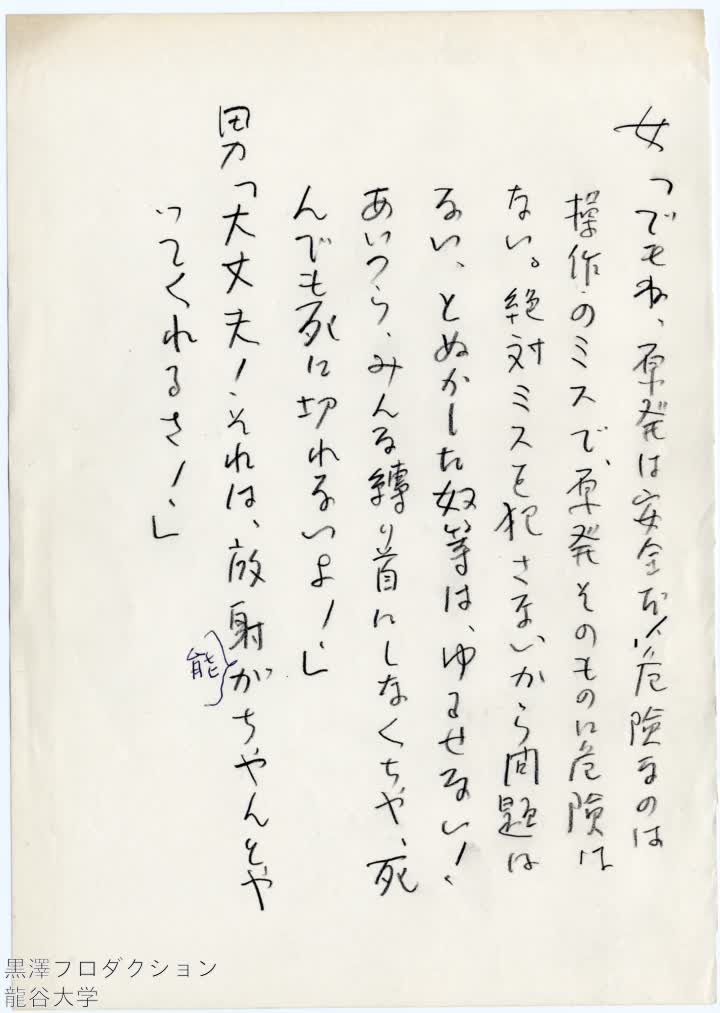 女「でもね、原発は安全だ!危険なのは
操作のミスで、原発そのものに危険は
ない。絶対ミスを犯さないから問題は
ない、とぬかした奴等は、ゆるせない!
あいつら、みんな縛り首にしなくちや、死
んでも死に切れないよ!」
男「大丈夫!それは、放射能がちやんとや
ってくれるさ!」
黒澤プロダクション
龍谷大学